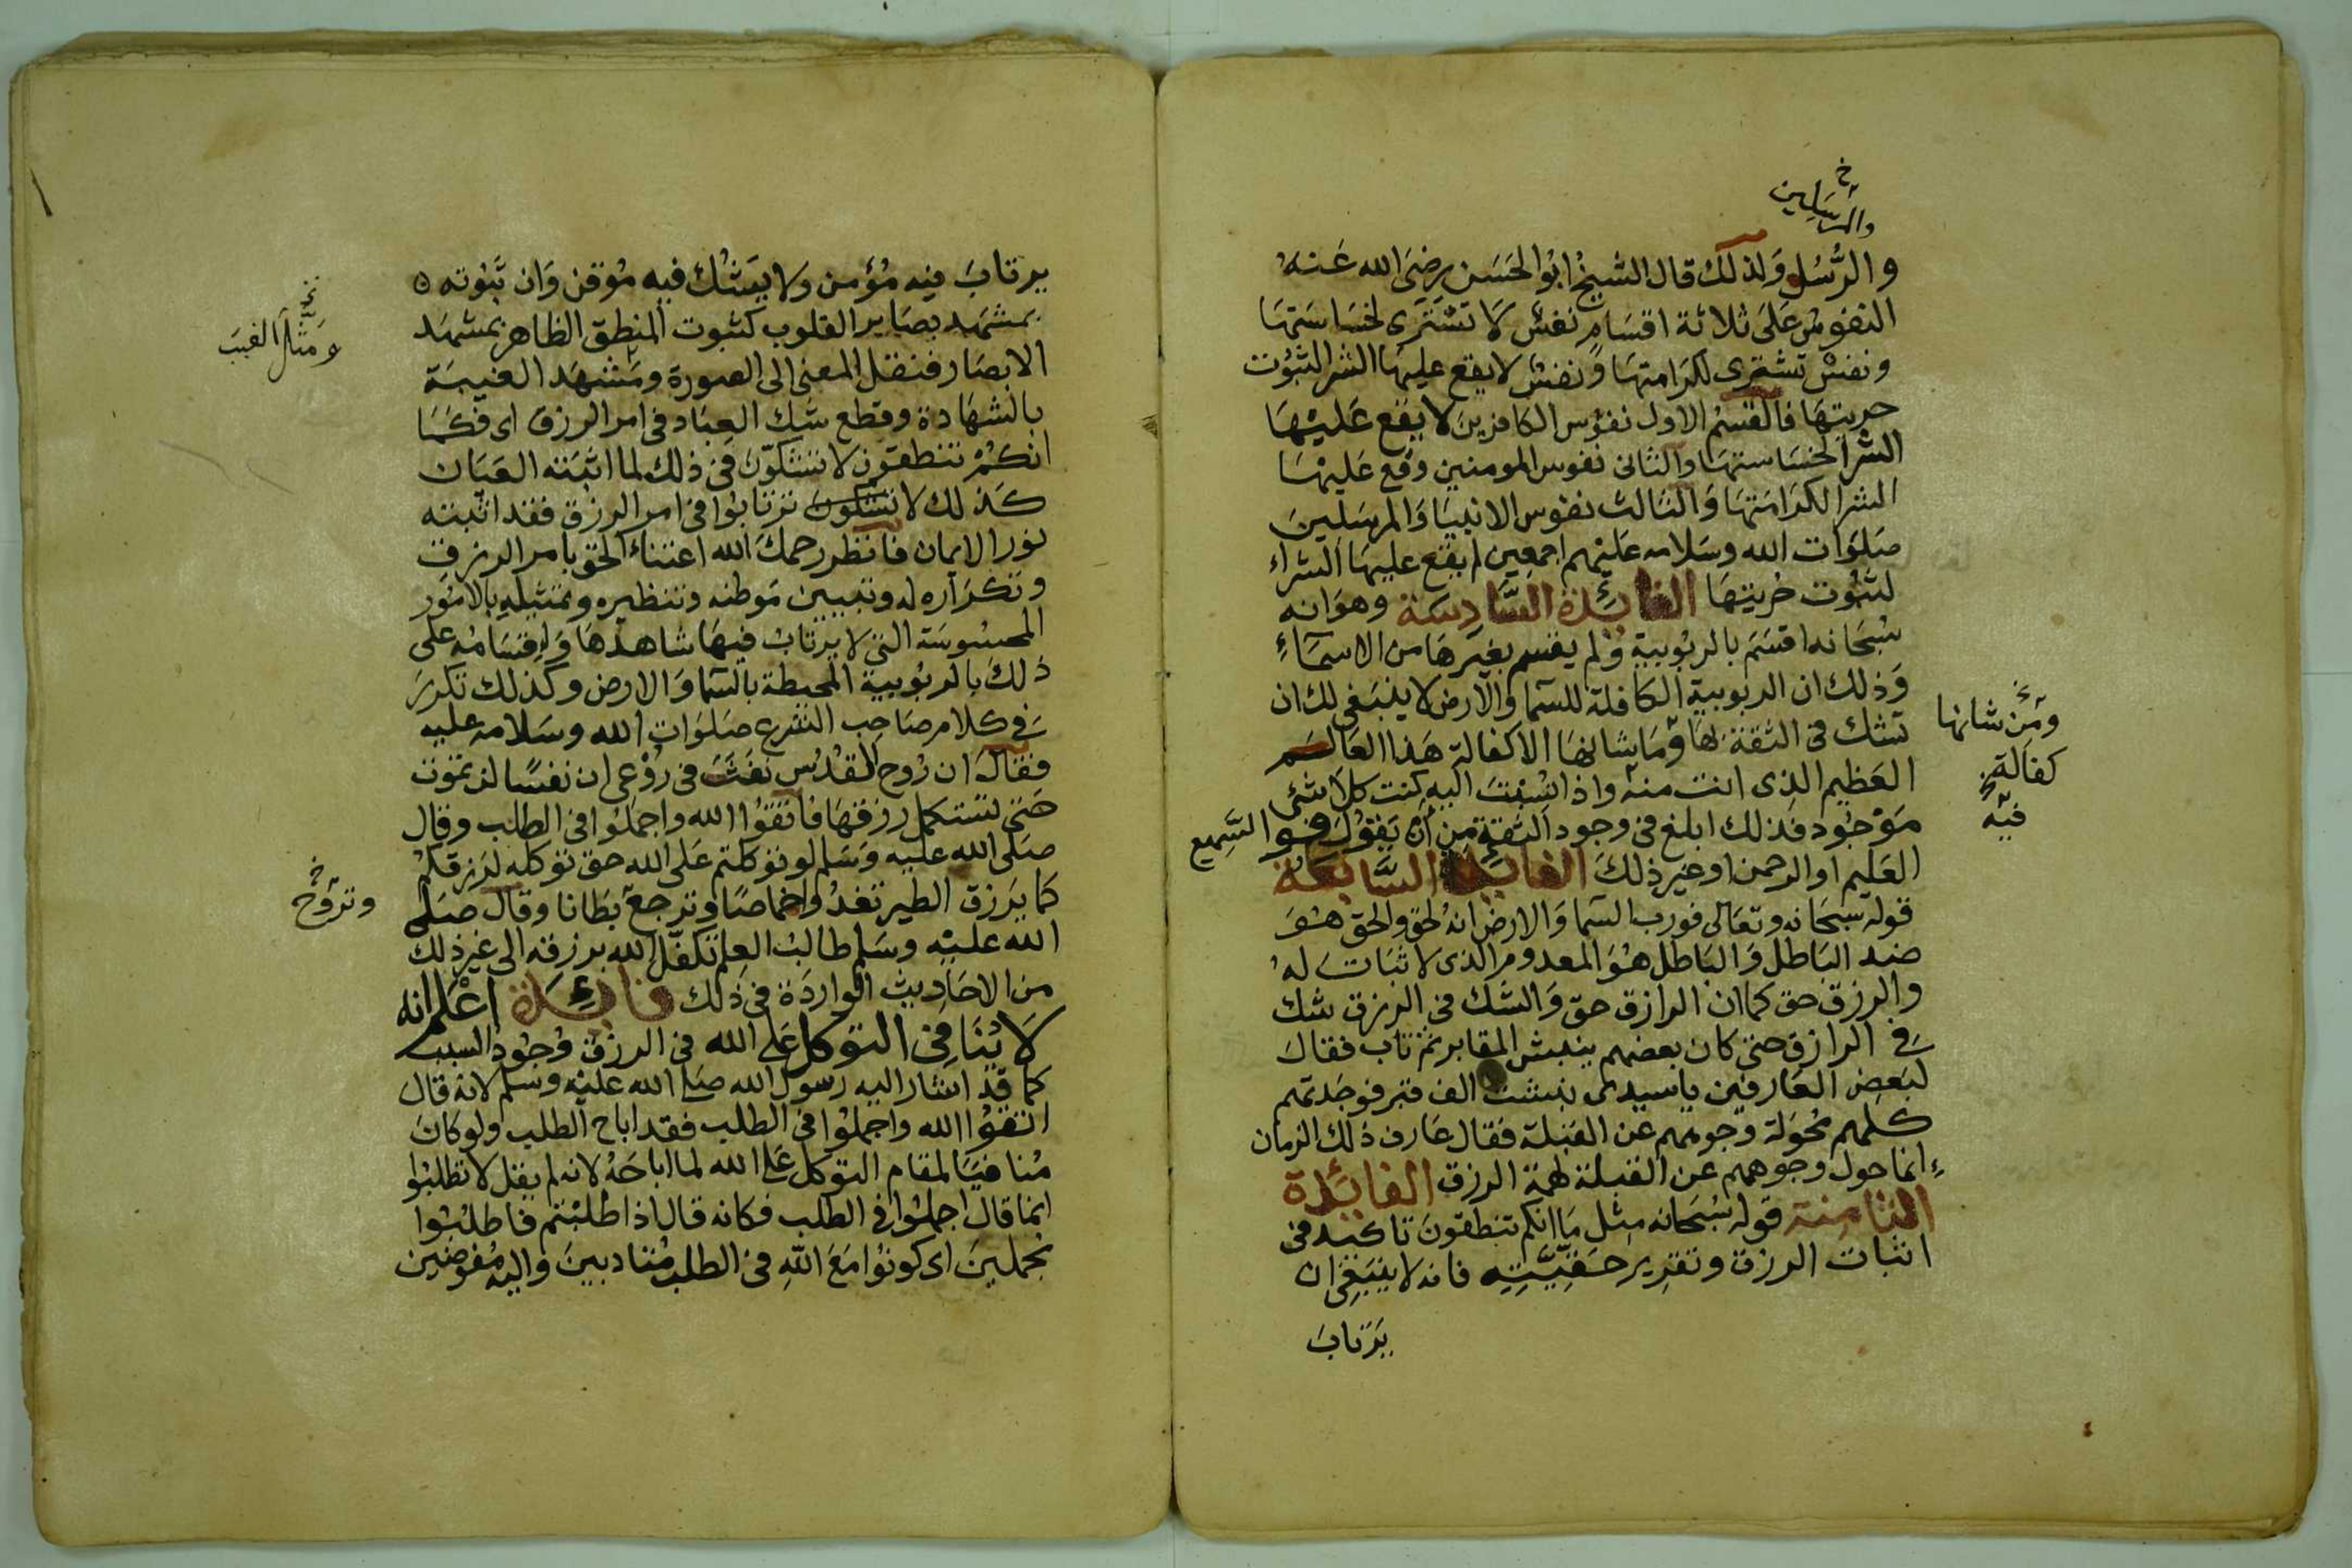 خ
والمرسلين
والرُّسُل وَلذلك قال الشيخ ابوالحَسَن رضىَ الله عَنهُ
النفوسُ عَلىَ ثلاثة اقسَامٍ نفسٌ لا تشترَى لخسَاسَتهَا
ونفسٌ تشترى لكرَامتهَا وَنفسٌ لا يقع عليهَا الشرا لثبُوت
حريتهَا فالقسمُ الاول نفوُس الكافرينَ لا يقع عَليْهَا
الشرَا لخسَاستهَا والثانى نفوس المومنين وقع عَليهَا
الشرا لكرَامَتهَا وَالثالث نفوس الانبيَا وَالمرسَلينَ
صَلوَات الله وسَلامه عَليْهم اجمعين لم يقع عليهَا الشراء
لثبُوت حُريتهَا الفائدة السَّادِسَة وهوَانه
سُبْحَانه اقسَمَ بالربُوبية وَلم يقسم بغيرهَا من الاسمَآءِ
وَذلك ان الربوبية الكافلة للسمآ والارض لا ينبَغى لك ان
تشك فى الثقة بهَا وَمَا شانهَا الا كفالة هَذا العَالَم
ومَن شانها
كفالة
خ
فيه
العَظيم الذى انت منهُ واذا نُسِبْتَ اليهِ كنت كلا شئى
مَوْجُود فذلك ابلغ فى وجود الثقة مِن أن يَقوُلَ فوالسَّميع
العَليم اوالرحمن اوغير ذلكَ الفائدة السَّابعَة
قوله سبحَانه وتعَالى فورب السَّما وَالارض انهُ لحق والحق هوَ
ضد البَاطل وَالبَاطل هوَ المعدوم الذى لا ثبَات لهُ
والرزق حق كما ان الرازق حق وَالشك فى الرزق شك
فى الرازق حتى كان بعضهم ينبش المقابر ثم تاب فقال
لبَعض العَارفين يا سيدى نبشت الف قبر فوجَدتهم
كلهم محُوَلة وجوههم عن القبلة فقال عَارف ذلك الزمان
انما حول وجوههم عن القبلة تهمة الرزق الفائدة
الثامِنة قوله سُبحَانه مِثل مَا انكم تنطقونَ تاكيد فى
اثبات الرزق وتقرير حَقيَّتِه فانه لا ينبَغى ان
يَرتابَ
يرتابَ فيه مُؤمن وَلا يَشُك فيه مُوقن وَان ثبُوته
بمشهَد بصَاير القلوب كثبوت المنطق الظاهر بمشهَد
الابصَار فنقل المعنى الى الصورة ومَشهَد الغيبَة
خ
ومَثَّلَ الغيبَ
بالشهَادة وقطع شك العِبَاد فى امر الرزق اى فكمَا
انكمْ تنطقون لا تشكوّن فى ذلك لما اثبَته العيَان
كذلك لا تشكون ترتابوُا فى امر الرزق فقد اثبته
نورا لايمان فانظر رحمكَ الله اعتناء الحق بامر الرزق
وتكرَاره له وتبيين مَوطنه وتنظيره وتمثيله بالامُور
المحسوسَة التى لا يرتابُ فيهَا شاهدهَا وَاقسَامُه على
ذلكَ بالربوُبية المحيطة بالسَّما وَالارض وكذلك تكررَ
فى كلام صَاحب الشرع صَلوَات الله وسَلامه عليه
فقال ان رُوح القدُسِ نفثَ فى رُوْعى ان نفسًا لن تموت
حَتى تستكمل رزقهَا فاتقوُا الله واجملوُا فى الطلب وقال
صَلى الله عليه وَسَلم لو توكلتم عَلى الله حق توكله لرزقكمْ
كما يَرزق الطير تغدُوا خماصًا وترجعُ بطَانا وقال صَلى
خ
وتروح
الله عليْه وسَلم طالب العلم تكفل الله برزقه الى غير ذلك
من الاحَاديث الوارِدَة فى ذلك فائِدَة اعْلم انه
لا يُنَافى التوكل عَلى الله فى الرزق وجُود السبب
كما قد اشار اليه رسول الله صَلى الله عليْه وسلم لانه قال
اتقوُا الله واجملوُا فى الطلب فقد اباح الطلب ولوكانَ
مُنافيًا لمقام التوكل عَلى الله لما اباحَهُ لانه لم يقل لا تطلبُوا
انما قال اجملوُا فى الطلب فكانه قال اذا طلبْتم فاطلبُوا
مجملينَ اى كونوُا مَعَ اللهِ فى الطلب مُتادبينَ واليه مُفوضين